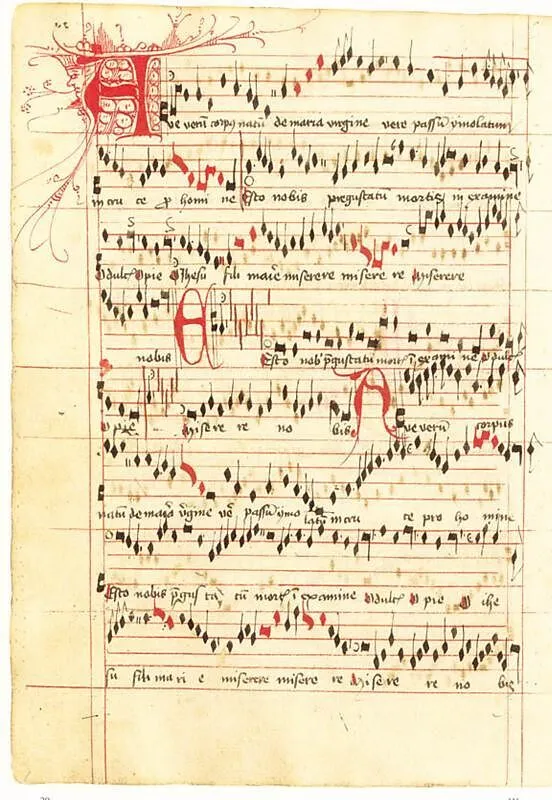 Ave verū corpꝰ natū de maria virgine vere passū īmolatum
in cru ce ꝓ homi ne Esto nobis pregustatū mortis in examine
O dulc̄ O pie O Jhesu fili marie miserere misere re Miserere
nobis Esto nob̄ p̄gustatū mort̄ ī exami ne O dulc̄
O pie Misere re no bis Ave verū corpus
natū de maria v̄gine ve passū īmo latū in cru ce pro ho mine
Esto nobis p̄gus ta tū mort̄ ī examine O dulc̄ O pie O ihe
su fili ma ri e miserere misere re Mise re re no bis